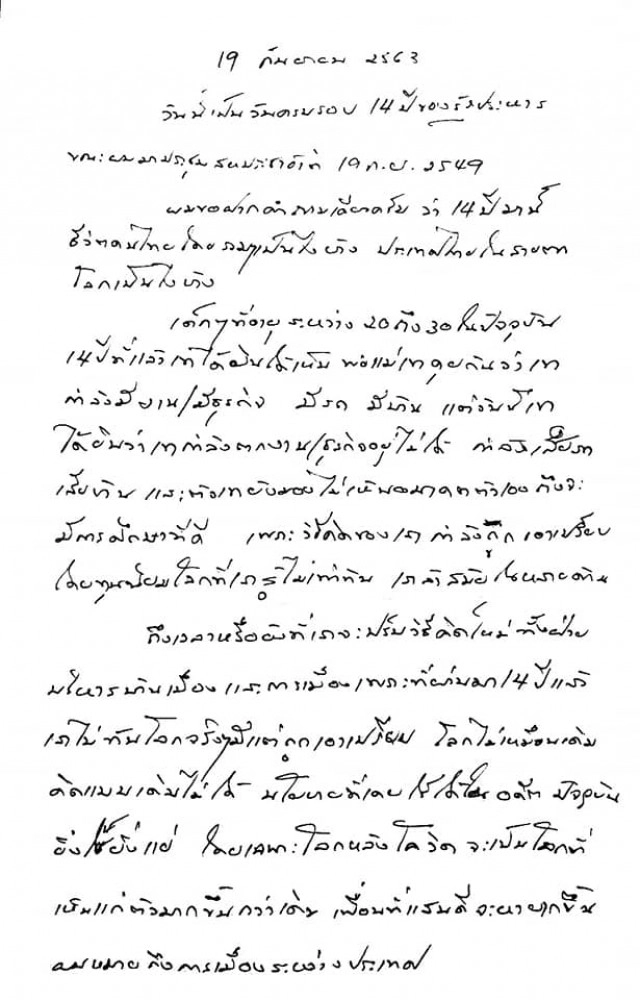 19 กันยายน 2563
วันนี้เป็นวันครบรอบ 14 ปีของรัฐประหาร
ขณะผมมาประชุมสหประชาชาติ 19 ก.ย. 2549
ผมขอฝากคำถามเดียวครับ ว่า 14 ปีมานี้
ชีวิตคนไทยโดยรวมๆเป็นไงบ้าง ประเทศไทยในสายตา
โลกเป็นไงบ้าง
เด็กๆที่อายุระหว่าง 20 ถึง 30 ในปัจจุบัน
14 ปีที่แล้วเขาได้ยินได้เห็น พ่อแม่เขาคุยกันว่าเขา
กำลังมีงาน/มีธุรกิจ มีรถ มีบ้าน แต่วันนี้เขา
ได้ยินว่าเขากำลังตกงาน/ธุรกิจอยู่ไม่ได้ กำลังเสียรถ
เสียบ้าน และตัวเขายังมองไม่เห็นอนาคตตัวเอง ถึงจะ
มีการศึกษาที่ดี เพราะวิธีคิดของเรากำลังถูกเอาเปรียบ
โดยทุนนิยมโลกที่เรารู้ไม่เท่าทัน เราล้าสมัยในหลายด้าน
ถึงเวลาหรือยังที่เราจะปรับวิธีคิดใหม่ทั้งฝ่าย
บริหารบ้านเมือง และการเมือง เพราะที่ผ่านมา 14 ปีแล้ว
เราไม่ทันโลกจริงๆมีแต่ถูกเอาเปรียบ โลกไม่เหมือนเดิม
คิดแบบเดิมไม่ได้ นโยบายที่เคยใช้ได้ในอดีต ปัจจุบัน
ยิ่งใช้ยิ่งแย่ โดยเฉพาะโลกหลังโควิด จะเป็นโลกที่
เห็นแก่ตัวมากขึ้นกว่าเดิม เพื่อนที่แสนดีจะหายากขึ้น
ผมหมายถึงการเมืองระหว่างประเทศ